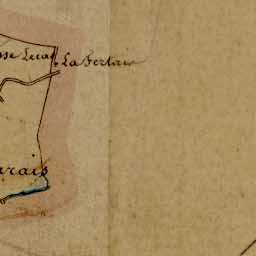 sse Lecas
La Fertais
arais